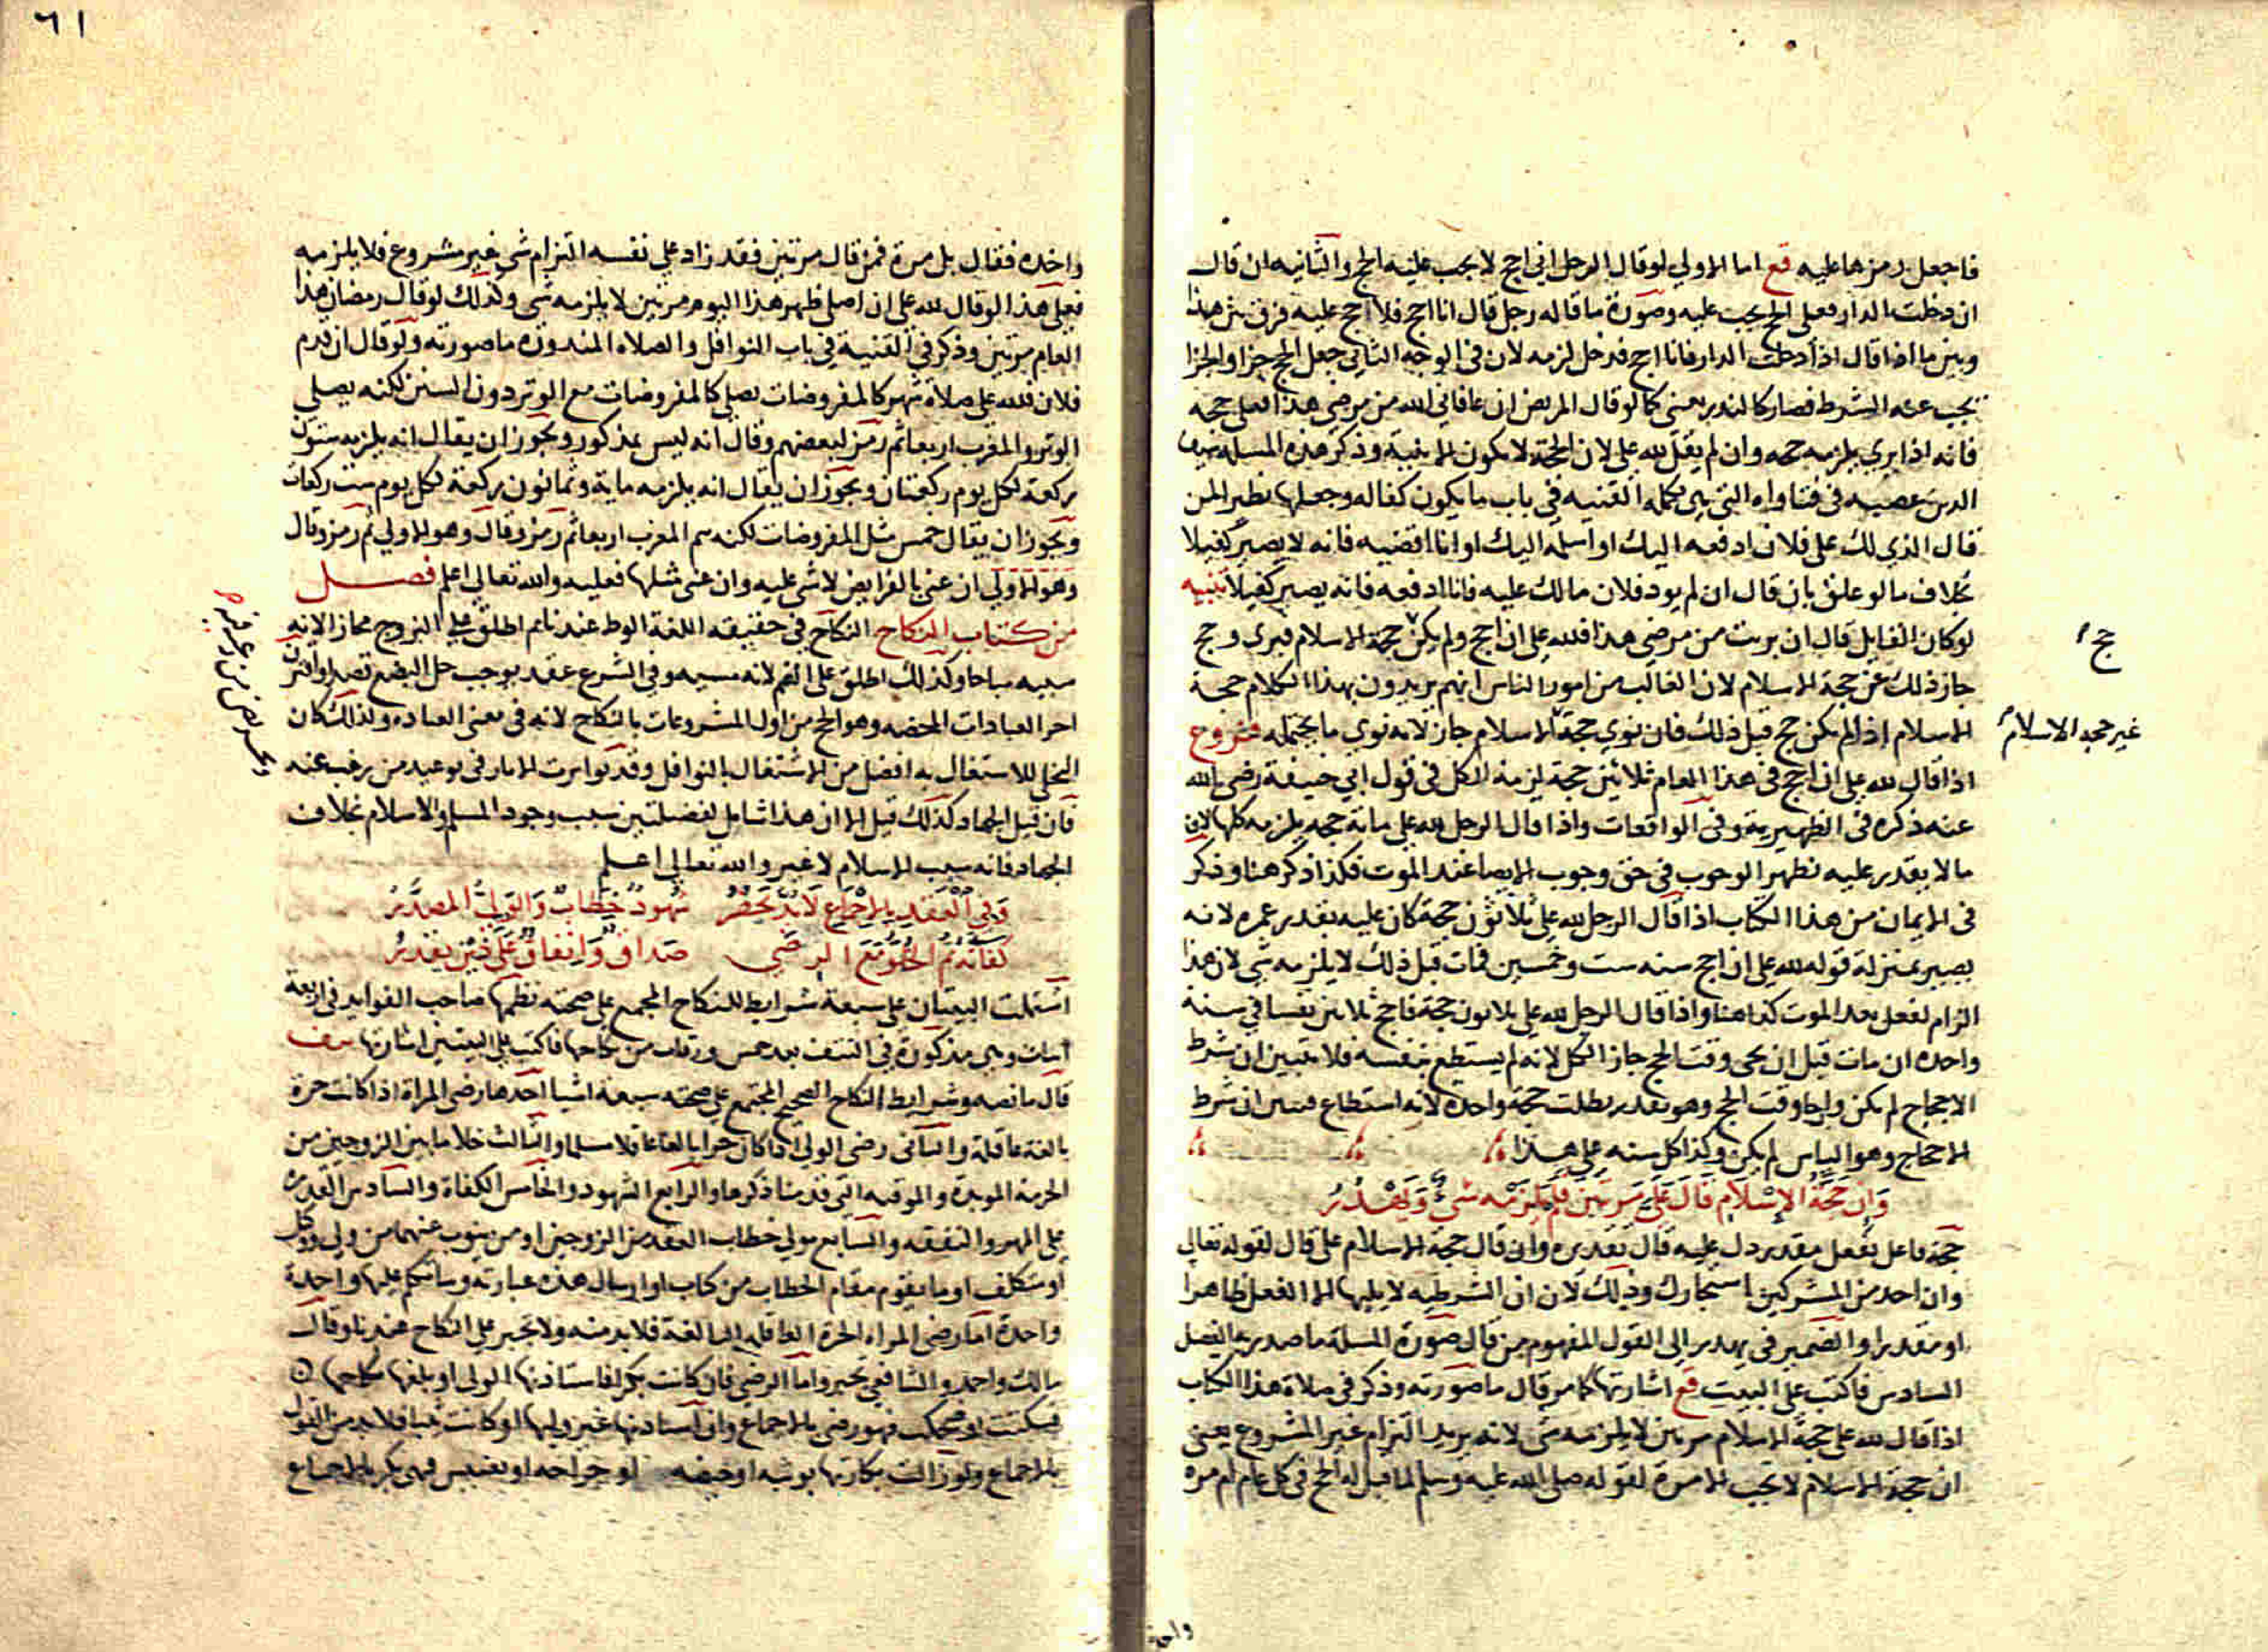 فاجعل رمزها عليه قع اما الاولي لو قال الرجل اني احج لا يجب عليه الحج والثانيه ان قال
ان دخلت الدار فعلي الحج يجب عليه وصورة ما قاله رجل قال انا احج فلا احج عليه فرق بين هذا
وبين ما اذا قال اذا دخلت الدار فانا احج فدخل لزمه لان في الوجه الثاني جعل الحج جزا والجزا
يجب عند الشرط فصار كالنذر بمعنى كما لو قال المريض ان عافاني الله من مرضي هذا فعلي حجه
فانه اذا بري يلزمه حجه وان لم يقل لله علي لان الحجة لا يكون الا بنية وذكر هذه المسلة
في فتاواه التي هي تكملة القنيه في باب ما يكون كفاله وجعلها نظير لمن
قال الذي لك على فلان ادفعه اليك او اسلمه اليك او انا اقضيه فانه لا يصير كفيلا
بخلاف ما لو علق بان قال ان لم يود فلان مالك عليه فانا ادفعه فانه يصير كفيلا تنبيه
لو كان القايل قال ان بريت من مرضي هذا فلله علي ان احج ولم يكن حجة الاسلام فبري وحج
حج
جاز ذلك عن حجة الاسلام لان الغالب من امور الناس انهم يريدون بهذا الكلام حجة
الاسلام اذا لم يكن حج قبل ذلك فان نوي حجة الاسلام جاز لانه نوى ما يحتمله فروع
غير حجة الاسلام
اذا قال لله علي ان احج في هذا العام ثلاثين حجة لزمه الكل في قول ابي حنيفة رضي الله
عنه ذكره في الظهيرية وفي الواقعات واذا قال الرجل لله علي مائة حجه يلزمه كلها لان
ما لا يقدر عليه يظهر الوجوب في حق وجوب الايصا عند الموت فكذا ذكر هنا وذكر
في الايمان من هذا الكتاب اذا قال الرجل لله علي ثلاثون حجة كان عليه بقدر عمره لانه
يصير بمنزلة قوله لله علي ان احج سنه ست وخمسين فمات قبل ذلك لا يلزمه شي لان هذا
الزام لفعل بعد الموت كذا هنا واذا قال الرجل لله علي ثلاثون حجة فاحج ثلاثين نفسا في سنة
واحده ان مات قبل ان يجى وقت الحج جاز الكل لانه لم يستطع بنفسه فلا يتبين ان شرط
الاحجاج لم يكن واجا وقت الحج وهو يقدر بطلت حجة واحده لانه استطاع فتبين ان شرط
الاحجاج وهو الياس لم يكن وكذا كل سنه على هذا
وان حجة الاسلام قال علي مرتين فلم يلزمه شي ويهذر
حجة فاعل بفعل مقدر دل عليه قال تقديره وان قال حجة الاسلام علي قال لقوله تعالى
وان احد من المشركين استجارك وذلك لان ان الشرطيه لا يليها الا الفعل ظاهرا
او مقدرا والضمير في يهدر الى القول المفهوم من قال صورة المسلة ما صدر به الفصل
السادس فاكتب على البيت قع اشارتها كما مر قال ما صورته وذكر في صلاة هذا الكتاب
اذا قال لله علي حجة الاسلام مرتين لا يلزمه شى لانه يريد التزام غير المشروع يعنى
ان حجة الاسلام لا تجب الا مرة لقوله صلى الله عليه وسلم لما قيل له الحج في كل عام ام مره
واحده
٦١
واحده فقال بل مرة فمن قال مرتين فقد زاد على نفسه التزام شي غير مشروع فلا يلزمه
فعلى هذا لو قال لله علي ان اصلي ظهر هذا اليوم مرتين لا يلزمه شى وكذلك لو قال رمضان هذا
العام مرتين وذكر في القنية في باب النوافل والصلاه المنذوره ما صورته ولو قال ان قدم
فلان فلله علي صلاة شهر كالمفروضات يصلي كالمفروضات مع الوتر دون السنن لكنه يصلي
الوتر والمغرب اربعا ثم رمز لبعضهم وقال انه ليس بمذكور ويجوز ان يقال انه يلزمه ستون
ركعة لكل يوم ركعتان ويجوز ان يقال انه يلزمه ماية وثمانون ركعة لكل يوم ست ركعات
ويجوز ان يقال خمس مثل المفروضات لكنه يتم المغرب اربعا ثم رمز وقال وهو الاولي ثم رمز وقال
وهو الاولي ان عنى بالفرايض لا شي عليه وان عنى مثلها فعليه والله تعالى اعلم فصل
من كتاب النكاح النكاح في حقيقه اللغة الوطء عندنا ثم اطلق على التزوج مجازا لانه
سببه مباحا وكذلك اطلق على الضم لانه مسببه وفي الشرع عقد يوجب حل البضع قصدا واقترن
احر العبادات المحضه وهو الحج من اول المشروعات بالنكاح لانه في معنى العباده ولذلك كان
التخلي للاشتغال به افضل من الاشتغال بالنوافل وقد تواترت الاثار في توعيد من رغب عنه
فان قيل الجهاد كذلك قيل الا ان هذا شامل لفضلتين سبب وجود المسلم والاسلام بخلاف
الجهاد فانه سبب الاسلام لا غير والله تعالى اعلم
وفي العقد بالاجماع لابد تحضر شهود خطاب والولي المصدر
كفاته ثم الخلو مع الرضي صداق وانفاق على ذين يقدر
اشتملت البيتان على سبعة شرايط للنكاح المجمع على صحته نظمها صاحب الفوايد في اربعة
ابيات وهي مذكورة في النتف بعد خمس ورقات من نكاحها فاكتب على البيتين اشارتها نتف
قال ما نصه وشرايط النكاح الصحيح المجتمع على صحته سبعة اشيا احدها رضى المراة اذا كانت حرة
بالغة عاقلة والثاني رضى الولي اذا كان حرا بالغا عاقلا مسلما والثالث خلا ما بين الزوجين من
الحرمة الموبدة والموقته التي قدمنا ذكرها والرابع الشهود والخامس الكفاة والسادس القدرة
على المهر والنفقه والسابع تولي خطاب العقد من الزوجين او من ينوب عنهما من ولي ووكل
او متكلف او ما يقوم مقام الخطاب من كتاب او ارسال هذه عبارته وساتكلم عليها واحدة
واحدة اما رضى المراه الحرة العاقله البالغة فلا بد منه ولا تجبر على النكاح عندنا وقال
مالك واحمد والشافعي تجبر واما الرضي فان كانت بكرا فاستاذنها الولى او بلغها نكاحها
فسكتت او ضحكت فهو رضى بالاجماع وان استاذنها غير وليها او كانت ثيبا فلا بد من القول
بالاجماع ولو زالت بكارتها بوثبه او حيضه او جراحه او تعنيس فهي بكر بالاجماع